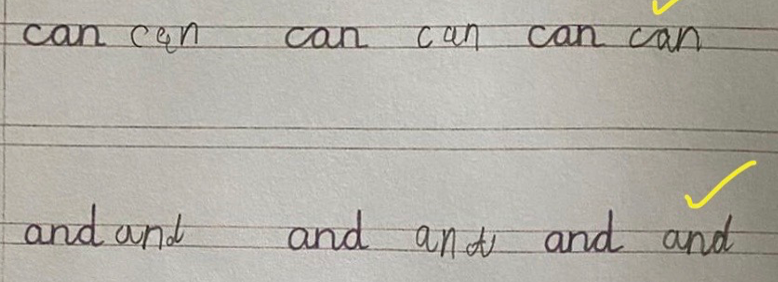 can can can can can can
and and and and and and